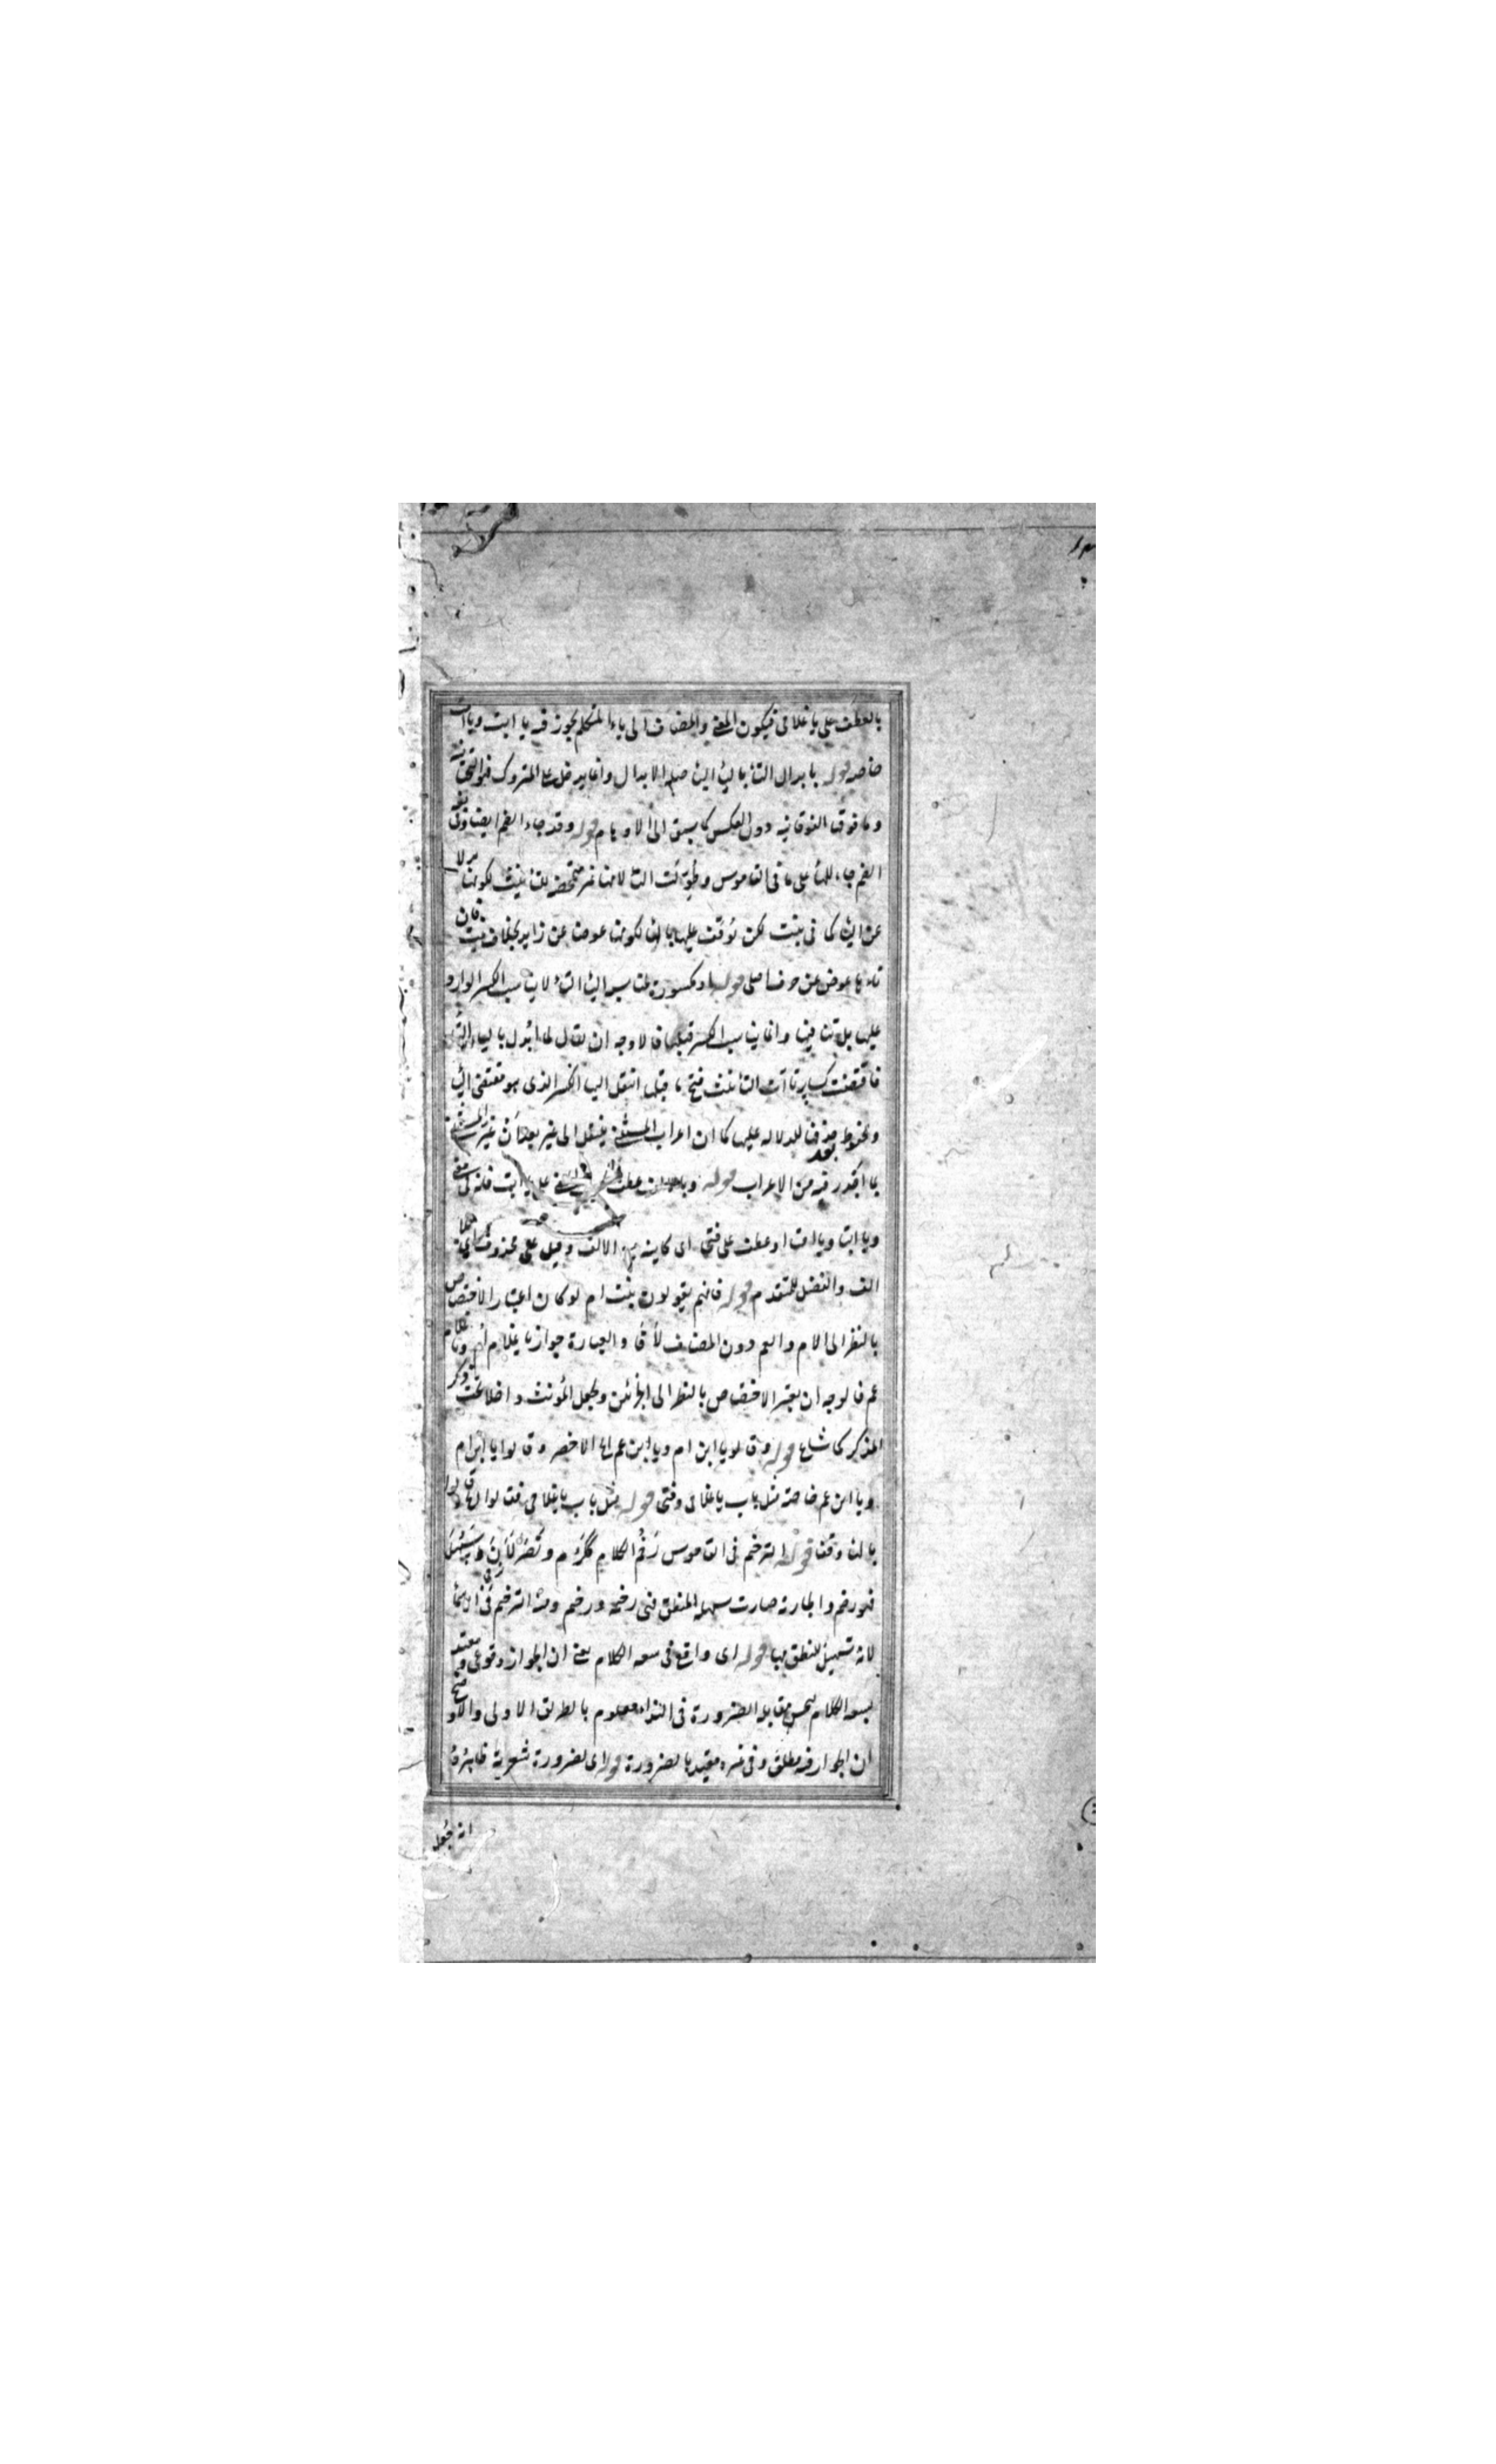 بالعطف على يا غلامى فيكون المعنى والمضاف الى ياء المتكلم يجوز فيه يا ابت ويا امت
خاصه قوله بابدال التاء بالياء الابدال وانما يدخل على المتروك فهو التحتانية
وما فوق الفوقانيه دون العكس كما سبق الى الاوهام قوله وقد جاء الضم ايضا وفى بعض
الضم جاء على ما فى القاموس وطولت التاء لانها غير متمحضة للتانيث لكونها بدلا
عن الياء كما فى بنت لكن توقف عليها بالهاء لكونها عوضا عن زايد بخلاف بنت فان
تاءها عوض عن حرف اصلى قوله او كسورة لمناسبة الياء التاء لا يناسب الكسر الوارد
عليها بل تنافيها وانما يناسب الكسر قبلها فالاوجه ان يقال لما ابدل بالياء التاء
فاقتضت كساير تاآت التانيث فتح ما قبلها انتقل اليها الكسر الذى هو مقتضى الياء
للدلالة عليها كما ان اعراب المستثنى ينتقل الى غير بعد ان غير المستثنى
بما قدر فيه من الاعراب قوله على يا ابت
ويا ابتا ويا امتا او عطف على فتحا اى كاينة الالف وقيل على محذوف
الف والفضل للمتقدم قوله فانهم يقولون بنت ام لو كان اعتبار الاختصاص
بالنظر الى الام والعم دون المضاف والعبارة جواز يا غلام ام ويا غلام
عم فالوجه ان يعتبر الاختصاص بالنظر الى الجزئين ويجعل المؤنث داخلا تحت ذكر
المذكر كما شاع قوله وقالوا يا ابن ام ويا ابن عم الاخصر وقالوا يا ابن ام
ويا ابن عم خاصة مثل باب يا غلامى وفتى قوله مثل باب يا غلامى فقالوا
بالهاء وقفا قوله الترخيم فى القاموس رخم الكلام ككرم ونصر لان وسهل
فهو رخيم والجارية صارت سهلة المنطق فهى رخيمة ورخيم ومنه الترخيم فى الاسماء
لانه تسهيل للنطق بها قوله اى واقع فى سعة الكلام يعنى ان الجواز وقوعى مقيد
بسعة الكلام بحسن مقابلة الضرورة فى النداء معلوم بالطريق الاولى
ان الجواز فيه مطلق وفى غيره مقيد بالضرورة قوله اى لضرورة شعرية
انه جعل